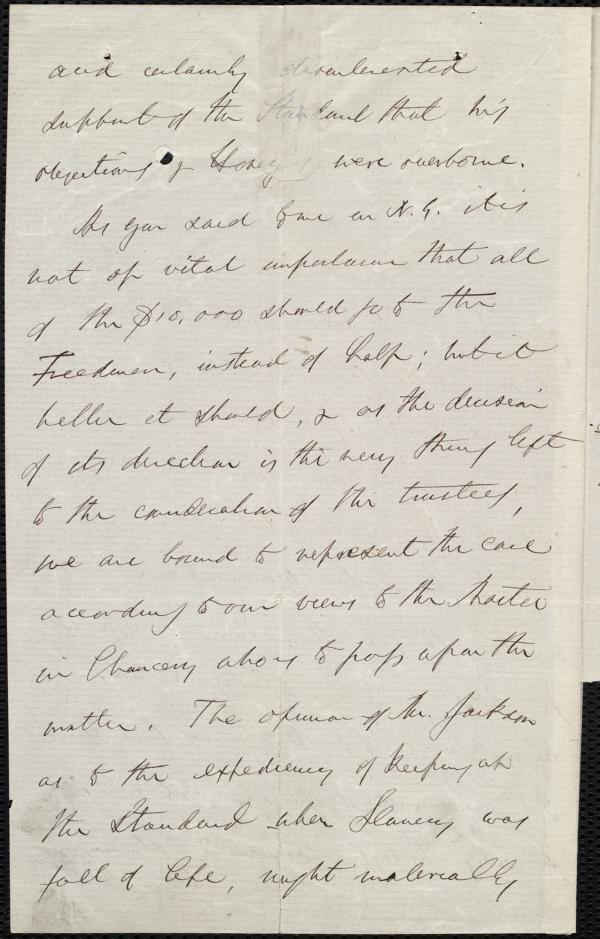 and certainly disinterested
support of the Standard that his
objections & Hovey's were overborne.
As you said to me in N.Y. it is
not of vital importance that all
of the $10,000 should go to the
Freedmen, instead of half; but it
better it should, & as the decision
of its direction is the very thing left
to the consideration of the trustees,
we are bound to represent the case
according to our views to the Master
in Chancery who is to pass upon the
matter. The opinion of Mr. Jackson
as to the expediency of keeping up
the Standard when Slavery was
full of life, might materially